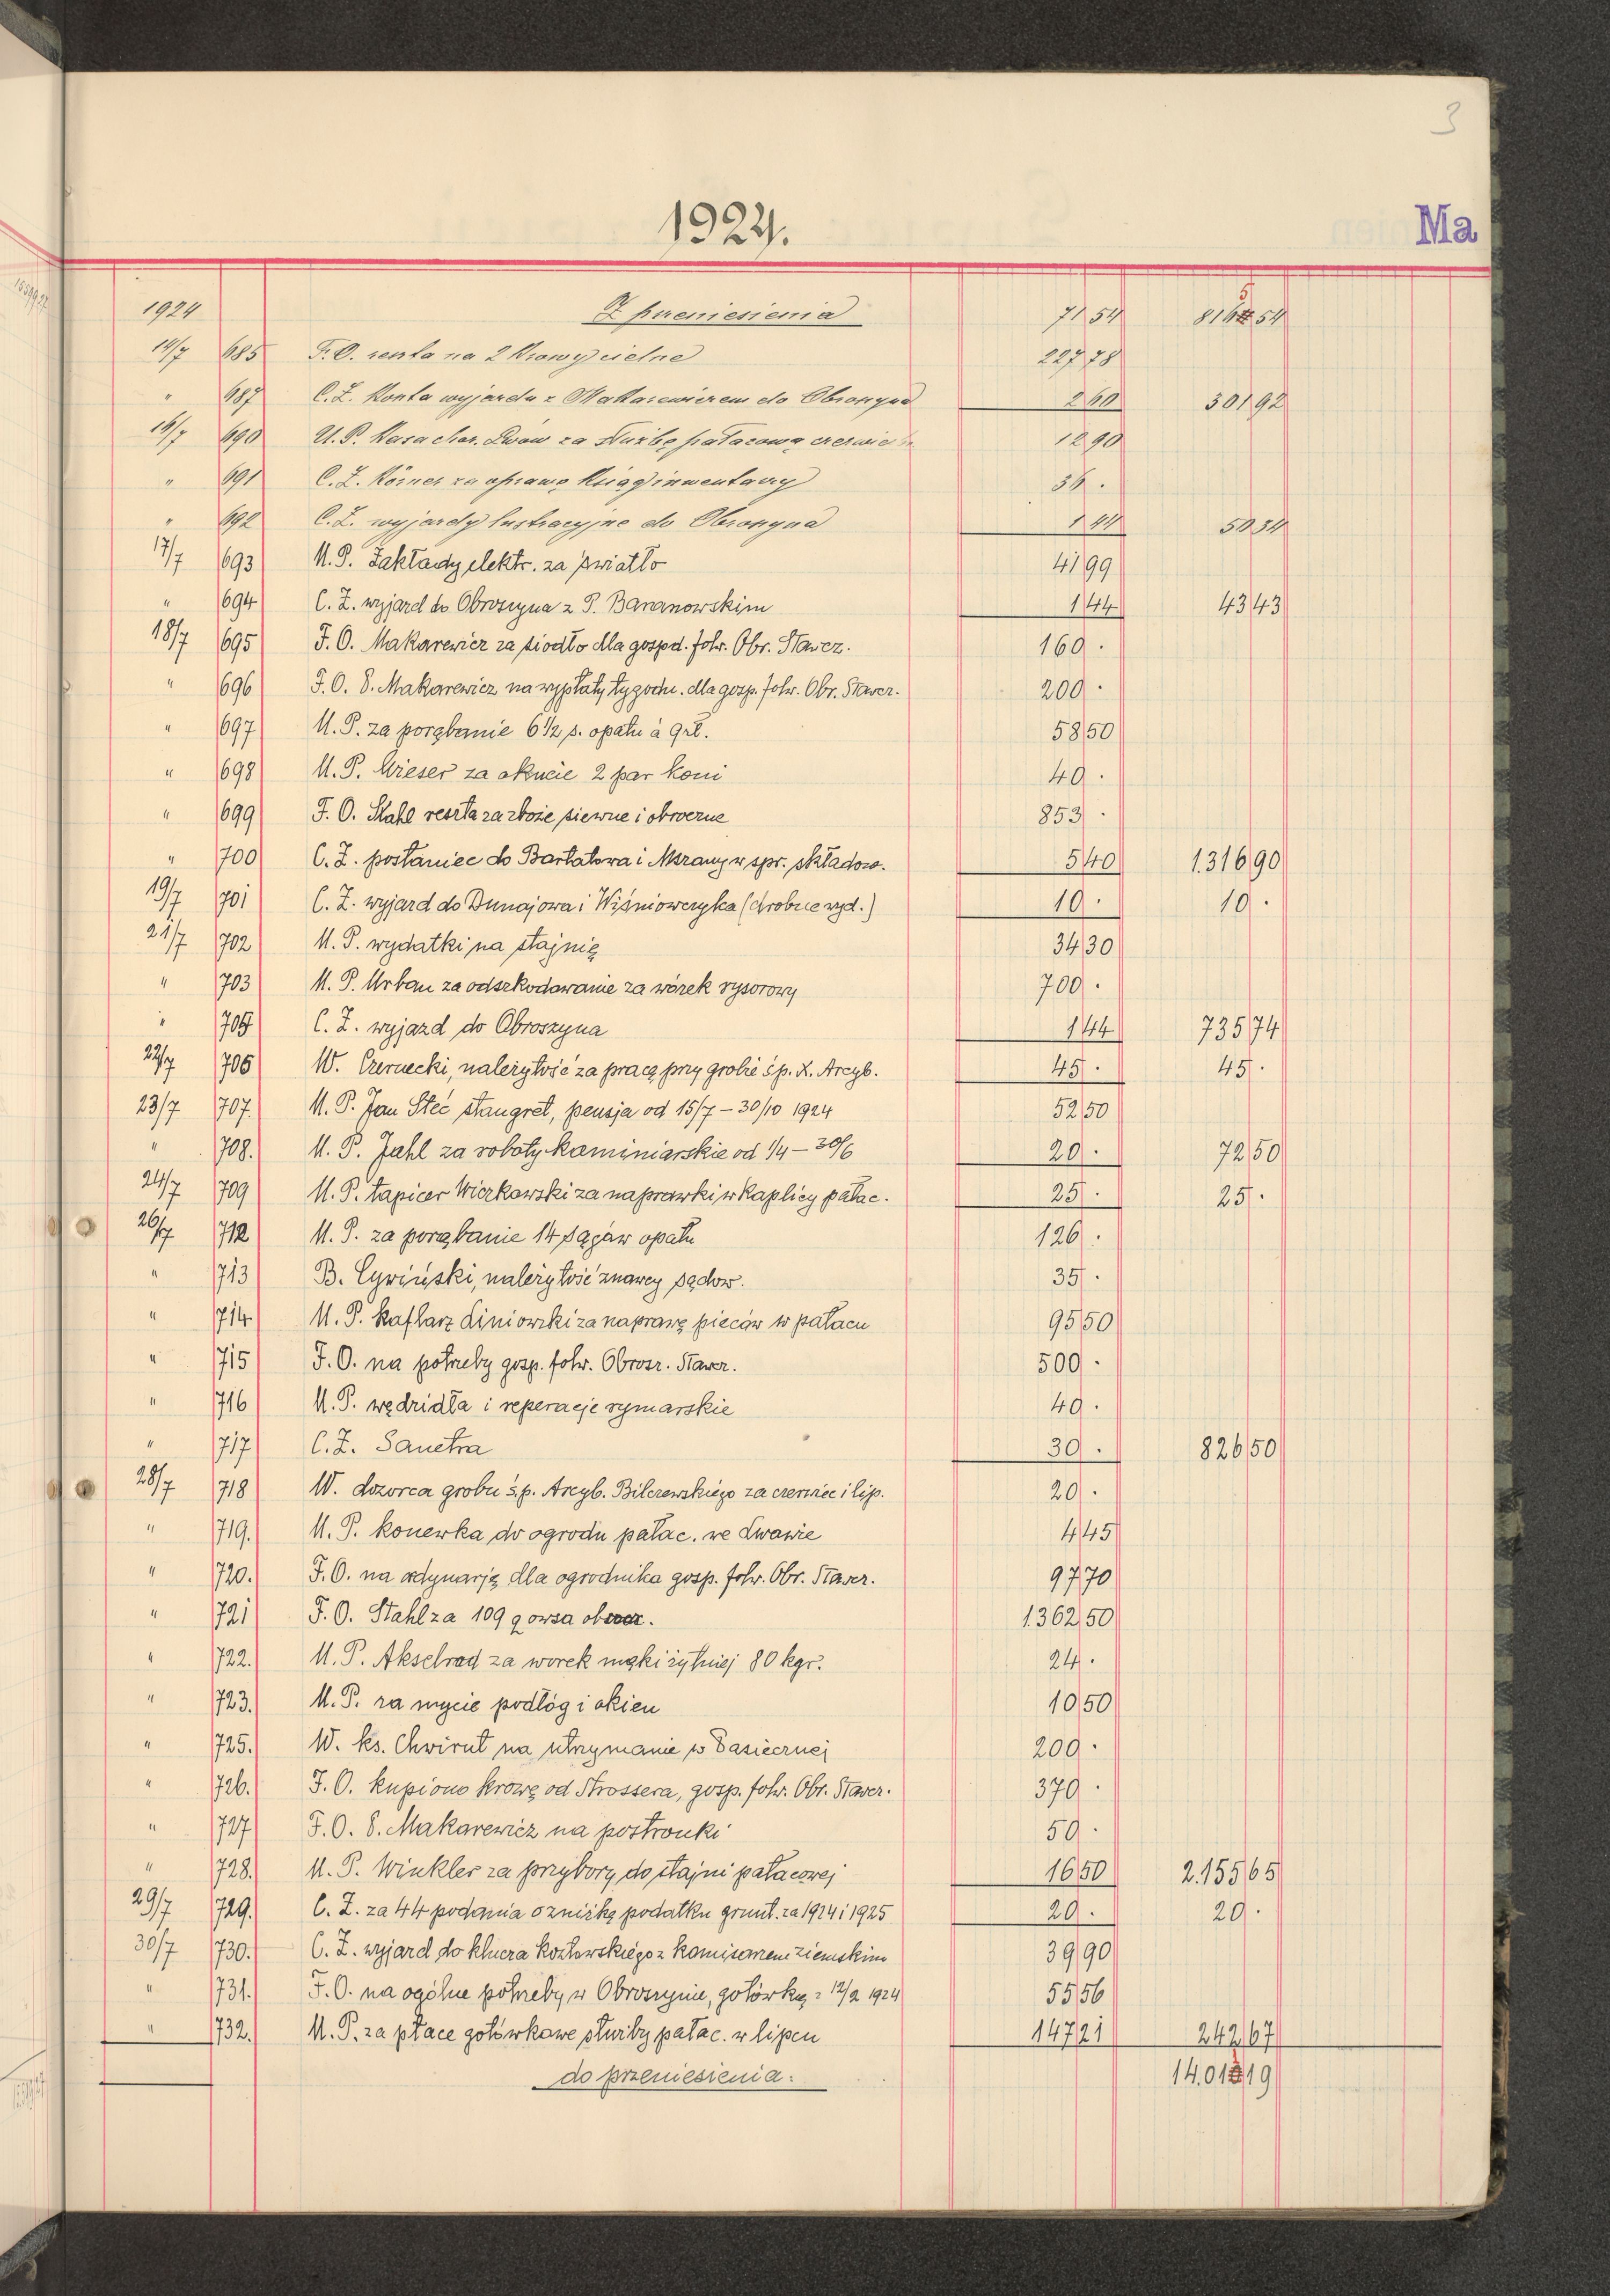 3
1924.
Ma
1924 Z przeniesienia 71 54 816 54
14/7 685 F. O. reszta na 2 krowy cielne 227 78
" 687 C. Z. Konta wyjazdu z Makarewiczem do Obroszyna 2 60 301 92
16/7 690 U. P. Kasa chor. Lwów za służbę pałacową czerwiec 12 90
" 691 C. Z. Körner za oprawę ksiąg inwentarzy 36 .
" 692 C. Z. wyjazdy lustracyjne do Obroszyna 1 44 50 34
17/7 693 U. P. Zakłady elektr. za światło 41 99
" 694 C. Z. wyjazd do Obroszyna z P. Baranowskim 1 44 43 43
18/7 695 F. O. Makarewicz za siodło dla gospod. folw. Obr. Stawcz. 160 .
" 696 F. O. S. Makarewicz na wypłaty tygodn. dla gosp. folw. Obr. Stawcz. 200 .
" 697 U. P. za porąbanie 6 1/2 s. opału à 9 zł. 58 50
" 698 U. P. Wieser za okucie 2 par koni 40 .
" 699 F. O. Stahl reszta za zboże siewne i obroczne 853 .
" 700 C. Z. posłaniec do Bartatowa i Mszany w spr. składow. 5 40 1.316 90
19/7 701 C. Z. wyjazd do Dunajowa i Wiśniowczyka (drobne wyd.) 10 . 10 .
21/7 702 U. P. wydatki na stajnię 34 30
" 703 U. P. Urban za odszkodowanie za wózek rysorowy 700 .
" 705 C. Z. wyjazd do Obroszyna 1 44 735 74
22/7 706 W. Czernecki, należytość za pracę przy grobie ś.p. X. Arcyb. 45 . 45 .
23/7 707. U. P. Jan Steć stangret, pensja od 15/7 – 30/10 1924 52 50
" 708. U. P. Jahl za roboty kominiarskie od 1/4 – 30/6 20 . 72 50
24/7 709 U. P. tapicer Wierkowski za naprawki w kaplicy pałac. 25 . 25 .
26/7 712 U. P. za porąbanie 14 sągów opału 126 .
" 713 B. Cywiński, należytość znawcy sądow. 35 .
" 714 U. P. kaflarz Liniowski za naprawę pieców w pałacu 95 50
" 715 F. O. na potrzeby gosp. folw. Obrosz. Stawcz. 500 .
" 716 U. P. wędzidła i reperacje rymarskie 40 .
" 717 C. Z. Sanetra 30 . 826 50
28/7 718 W. dozorca grobu ś.p. Arcyb. Bilczewskiego za czerwiec i lip. 20 .
" 719. U. P. konewka do ogrodu pałac. we Lwowie 4 45
" 720. F. O. na ordynarję dla ogrodnika gosp. folw. Obr. Stawcz. 97 70
" 721 F. O. Stahl za 109 q owsa obrocz. 1.362 50
" 722. U. P. Akselrad za worek mąki żytniej 80 kgr. 24 .
" 723. U. P. za mycie podłóg i okien 10 50
" 725. W. ks. Chwirut na utrzymanie w Pasiecznej 200 .
" 726. F. O. kupiono krowę od Strossera, gosp. folw. Obr. Stawcz. 370 .
" 727 F. O. S. Makarewicz na postronki 50 .
" 728. U. P. Winkler za przybory do stajni pałacowej 16 50 2.155 65
29/7 729. C. Z. za 44 podania o zniżkę podatku grunt. za 1924 i 1925 20 . 20 .
30/7 730. C. Z. wyjazd do klucza Kozłowskiego z komisarzem ziemskim 39 90
" 731. F. O. na ogólne potrzeby w Obroszynie, gotówką z 12/2 1924 55 56
" 732. U. P. za płace gotówkowe służby pałac. w lipcu 147 21 242 67
do przeniesienia: 19